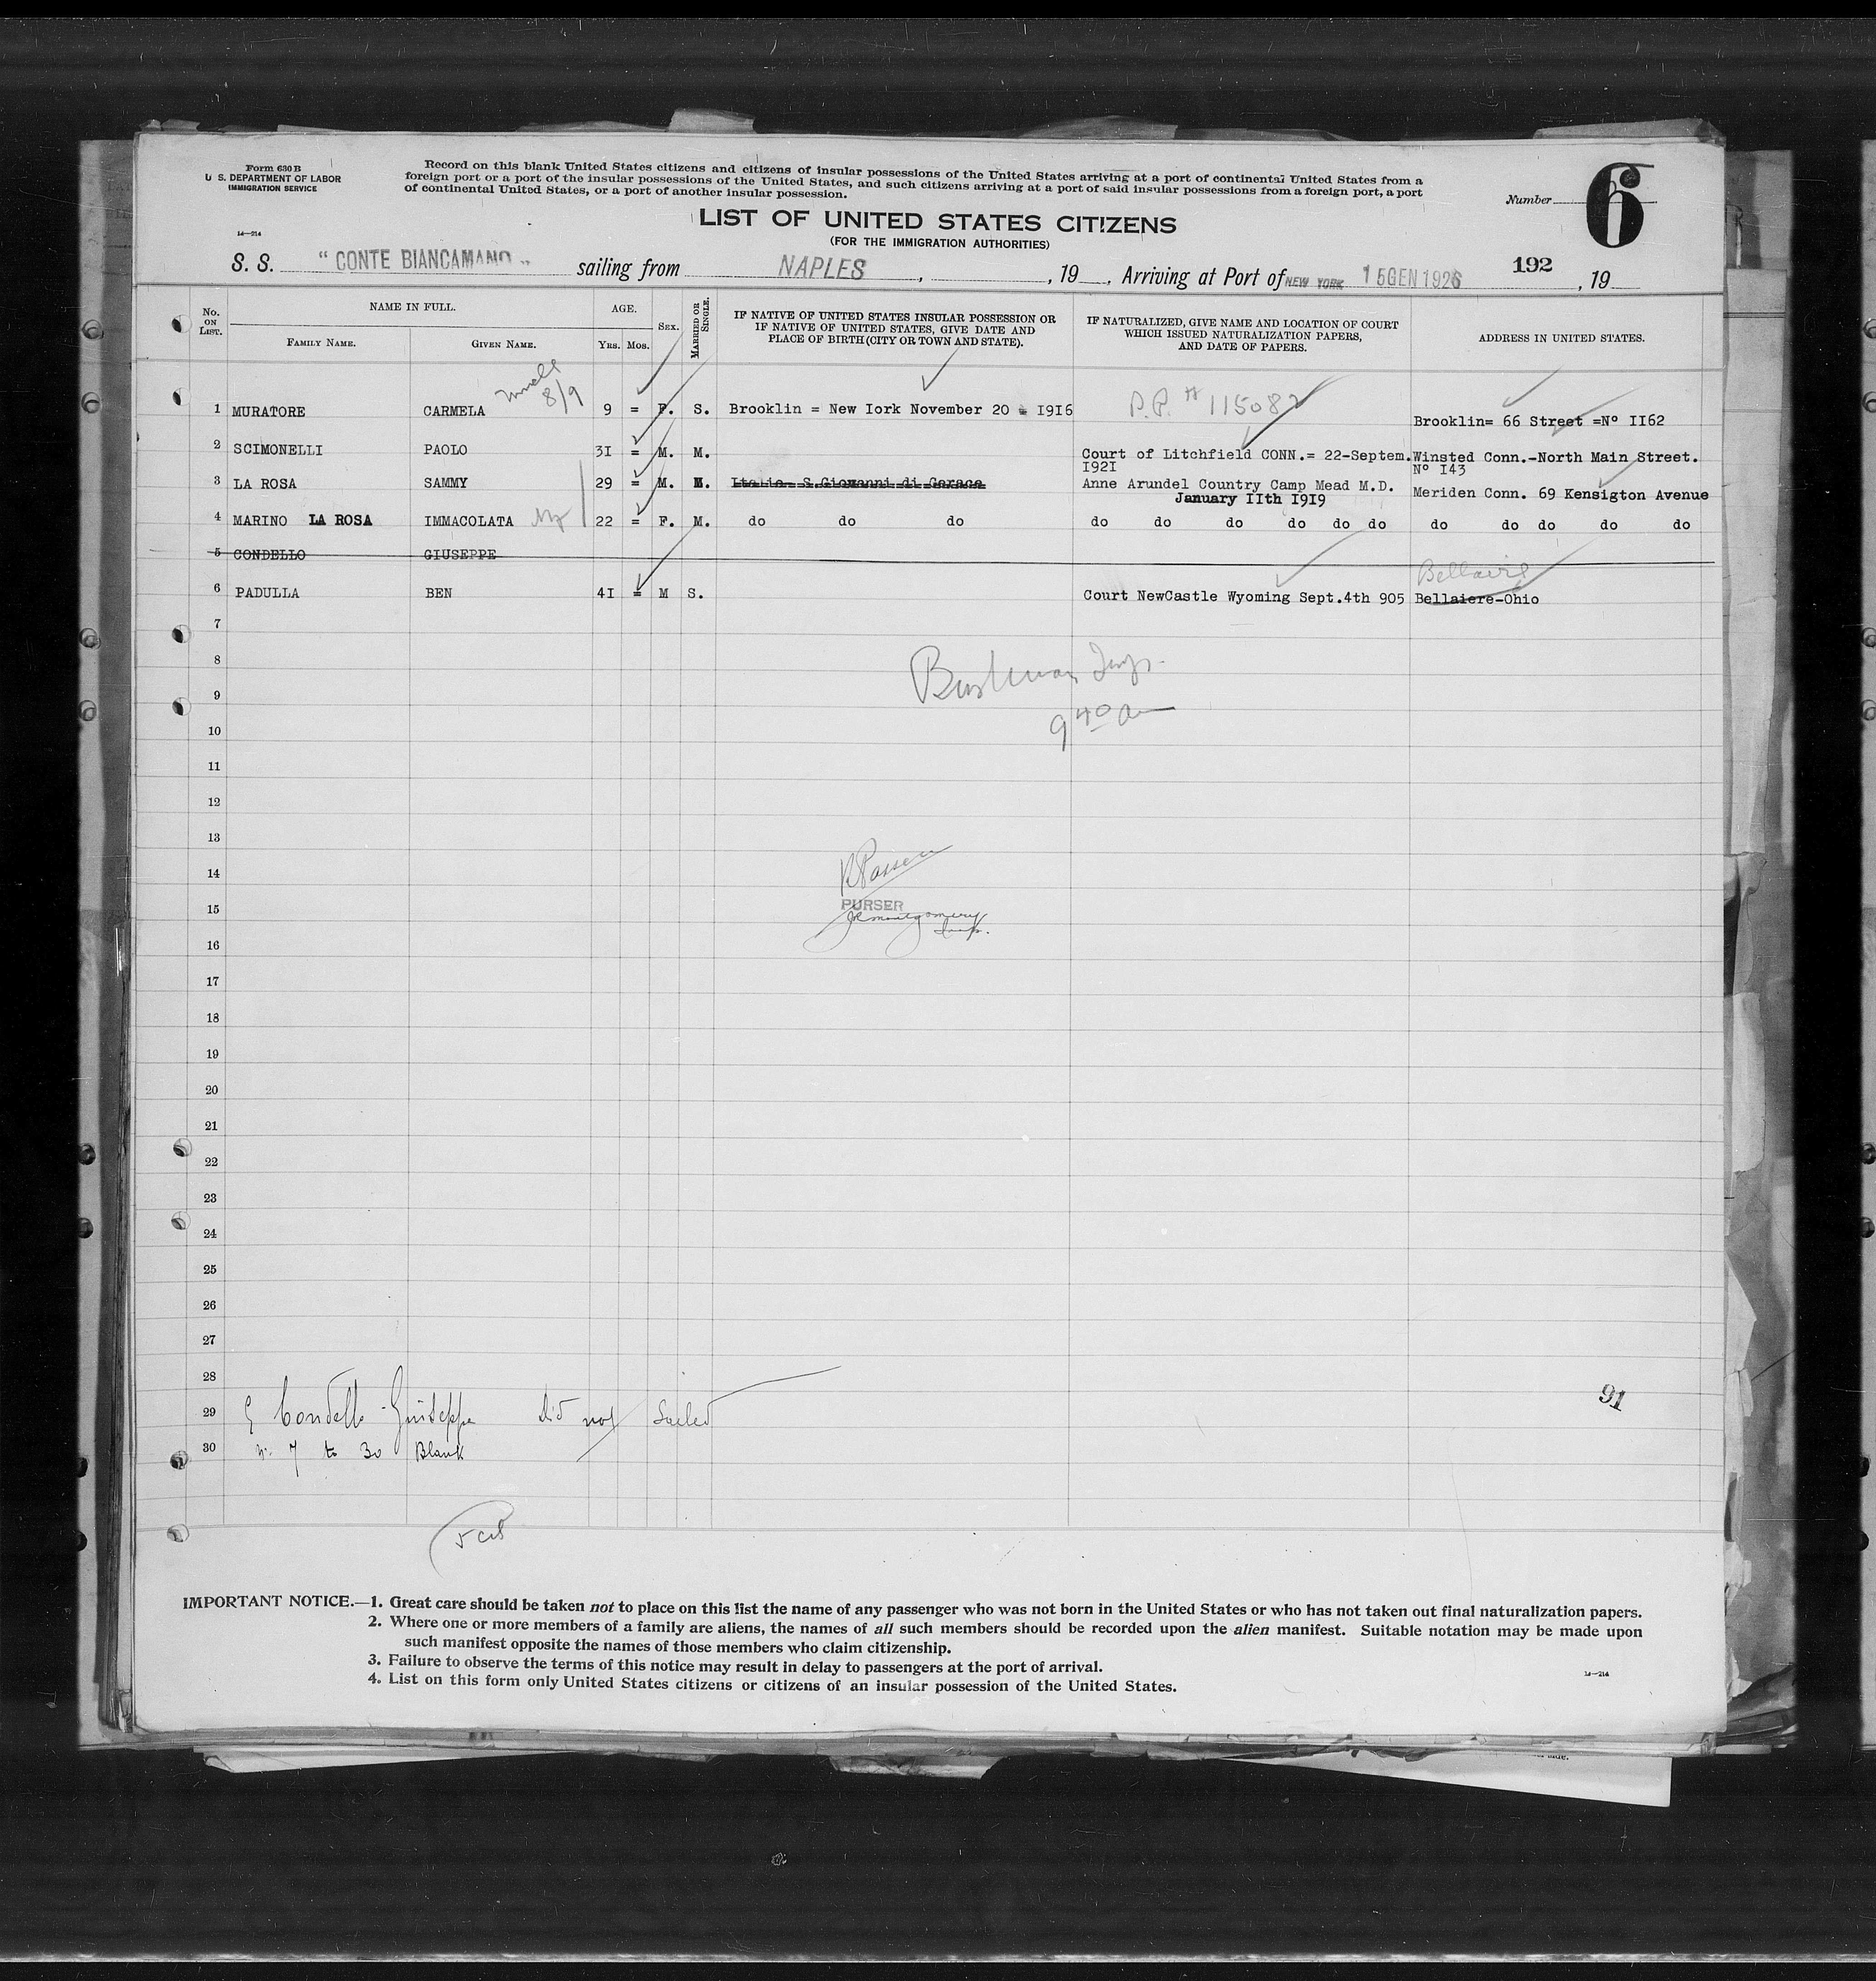 Form 630 B
U. S. DEPARTMENT OF LABOR
IMMIGRATION SERVICE
Record on this blank United States citizens and citizens of insular possessions of the United States arriving at a port of continental United States from a
foreign port or a port of the insular possessions of the United States, and such citizens arriving at a port of said insular possessions from a foreign port, a port
of continental United States, or a port of another insular possession.
Number 6
LIST OF UNITED STATES CITIZENS
(FOR THE IMMIGRATION AUTHORITIES)
14—214
S. S. "CONTE BIANCAMANO" sailing from NAPLES, , 19 , Arriving at Port of NEW YORK 15 GEN 1926 192 , 19
No. ON LIST.
NAME IN FULL.
FAMILY NAME.
GIVEN NAME.
AGE.
YRS. MOS.
SEX.
MARRIED OR SINGLE.
IF NATIVE OF UNITED STATES INSULAR POSSESSION OR
IF NATIVE OF UNITED STATES, GIVE DATE AND
PLACE OF BIRTH (CITY OR TOWN AND STATE).
IF NATURALIZED, GIVE NAME AND LOCATION OF COURT
WHICH ISSUED NATURALIZATION PAPERS,
AND DATE OF PAPERS.
ADDRESS IN UNITED STATES.
8/9
P.P. # 115082
1 MURATORE CARMELA 9 = F. S. Brooklin = New Iork November 20 = I9I6 Brooklin= 66 Street =Nº II62
2 SCIMONELLI PAOLO 3I = M. M. Court of Litchfield CONN.= 22-Septem. Winsted Conn.-North Main Street.
I92I Nº I43
3 LA ROSA SAMMY 29 = M. M. Italia- S.Giovanni di Gerace Anne Arundel Country Camp Mead M.D. Meriden Conn. 69 Kensigton Avenue
January IIth I9I9
4 MARINO LA ROSA IMMACOLATA 22 = F. M. do do do do do do do do do do do do do do
5 CONDELLO GIUSEPPE
Bellaire
6 PADULLA BEN 4I = M S. Court NewCastle Wyoming Sept.4th 905 Bellaiere-Ohio
7
8
9
9 40 am
10
11
12
13
14
PURSER
15
JR Montgomery
Insp.
16
17
18
19
20
21
22
23
24
25
26
27
28
91
29 Condello Giuseppe did not Sailed
30 N. 7 to 30 Blank
IMPORTANT NOTICE.—1. Great care should be taken not to place on this list the name of any passenger who was not born in the United States or who has not taken out final naturalization papers.
2. Where one or more members of a family are aliens, the names of all such members should be recorded upon the alien manifest. Suitable notation may be made upon
such manifest opposite the names of those members who claim citizenship.
3. Failure to observe the terms of this notice may result in delay to passengers at the port of arrival.
4. List on this form only United States citizens or citizens of an insular possession of the United States.
14—214